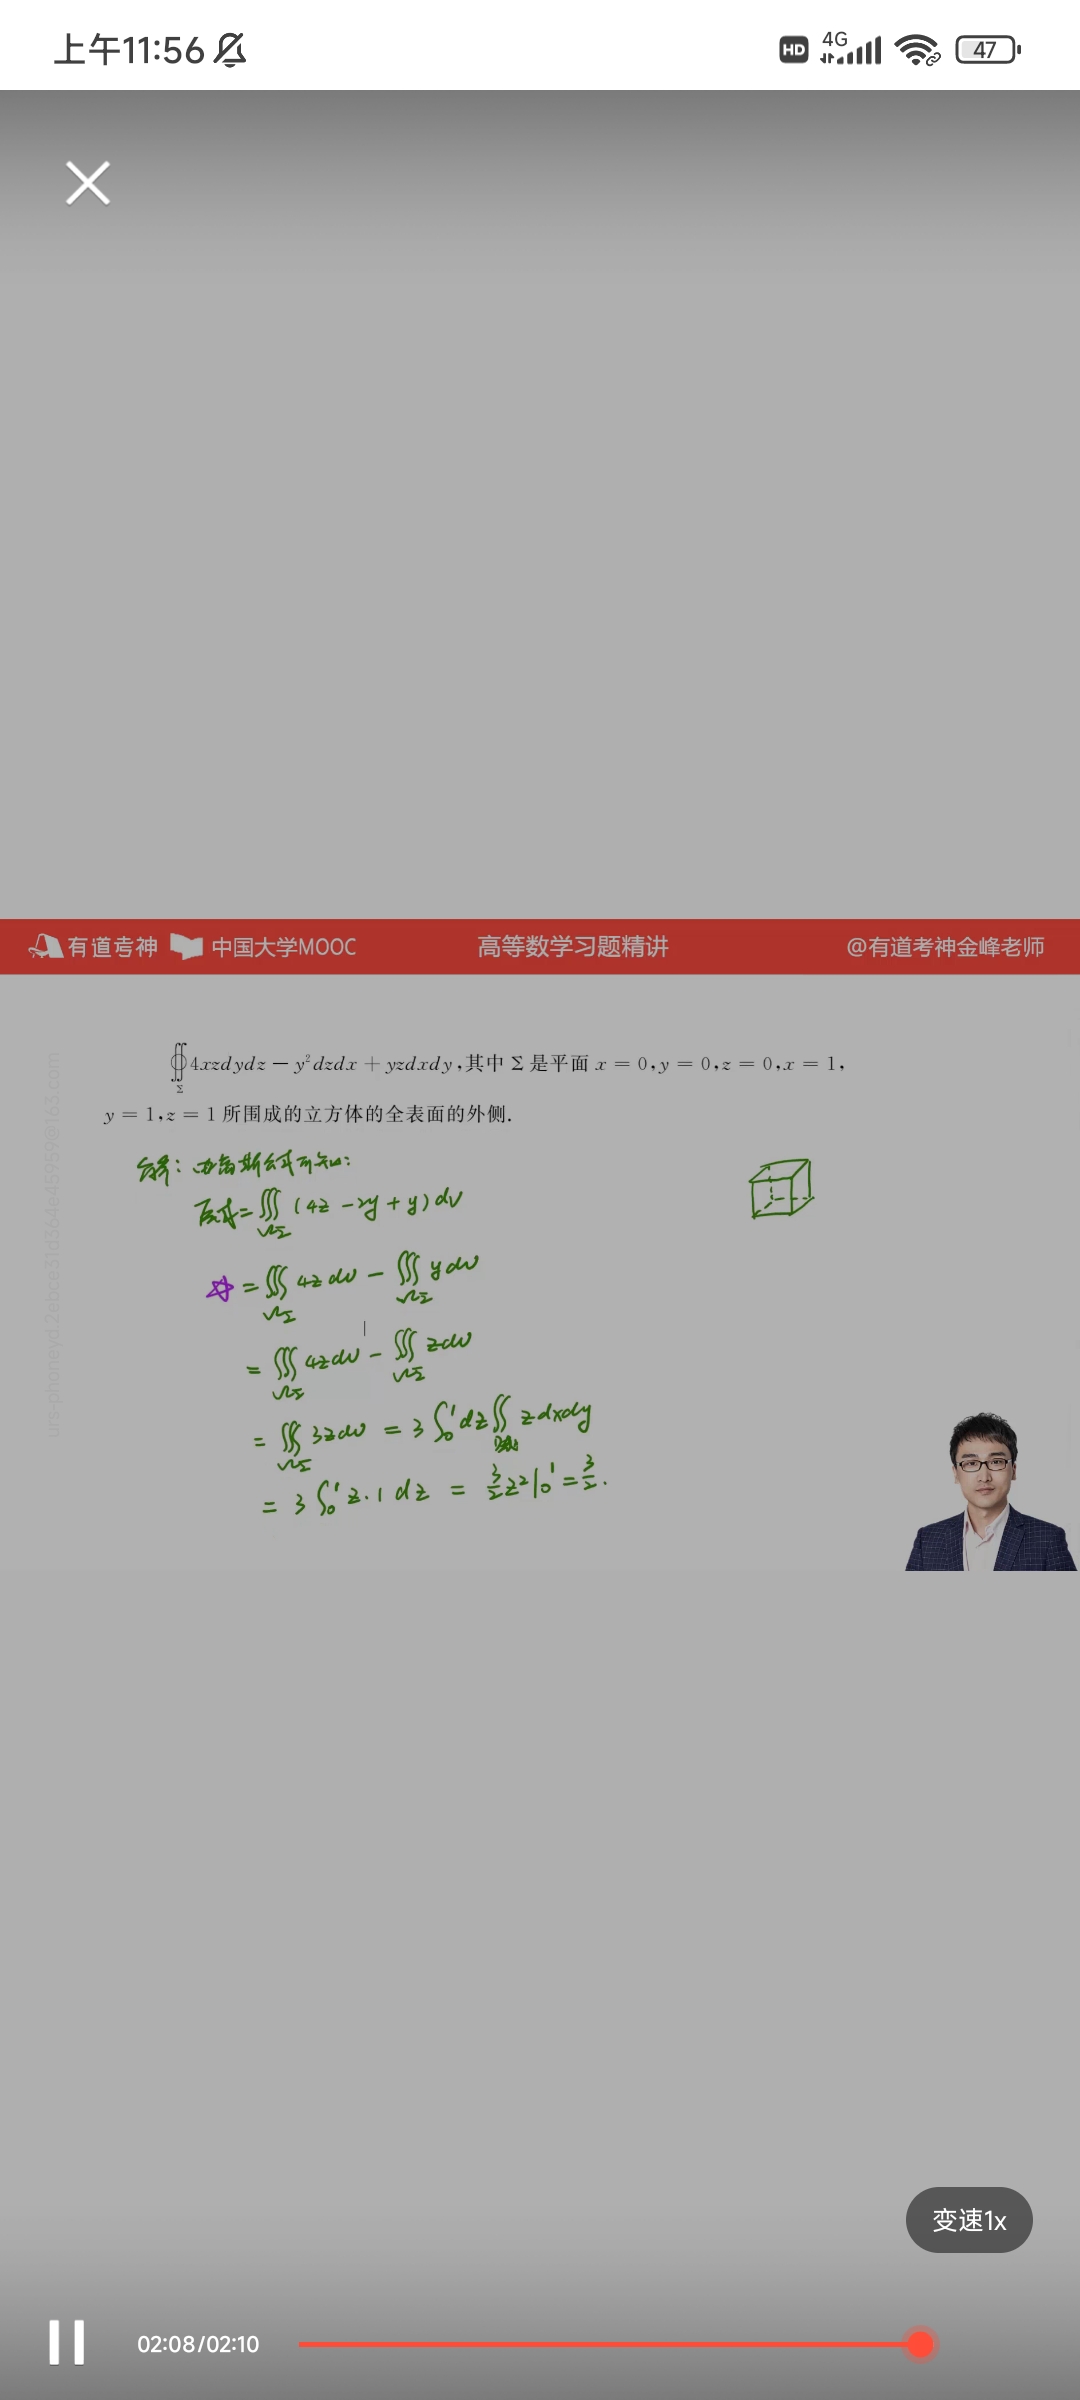 上午11:56 HD 4G 47
有道考神 中国大学MOOC 高等数学习题精讲 @有道考神金峰老师
∯_Σ 4xzdydz − y²dzdx + yzdxdy,其中 Σ 是平面 x = 0,y = 0,z = 0,x = 1,
y = 1,z = 1 所围成的立方体的全表面的外侧.
解: 由高斯公式可知:
原式=∭_ΩΣ (4z −2y + y) dv
= ∭_ΩΣ 4z dv − ∭_ΩΣ y dv
= ∭_ΩΣ 4z dv − ∭_ΩΣ z dv
= ∭_ΩΣ 3z dv = 3 ∫₀¹ dz ∬ z dxdy
= 3 ∫₀¹ z·1 dz = 3/2 z² |₀¹ = 3/2.
变速1x
02:08/02:10